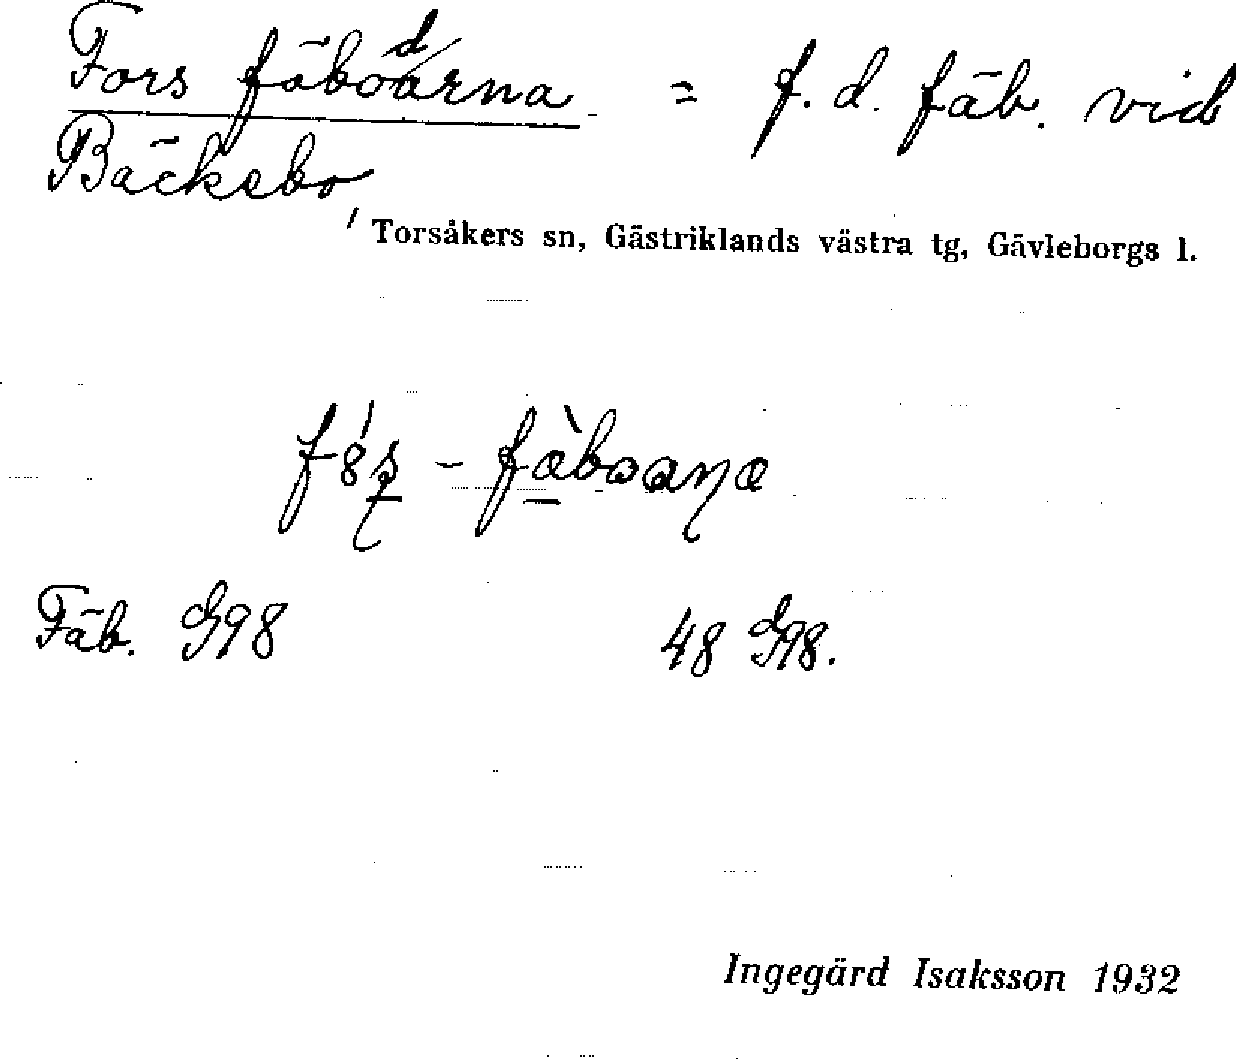 Fors fäbodarna = f. d. fäb. vid
Bäckebo,
Torsåkers sn, Gästriklands västra tg, Gävleborgs l.
Fäb. G98 48 G98.
Ingegärd Isaksson 1932